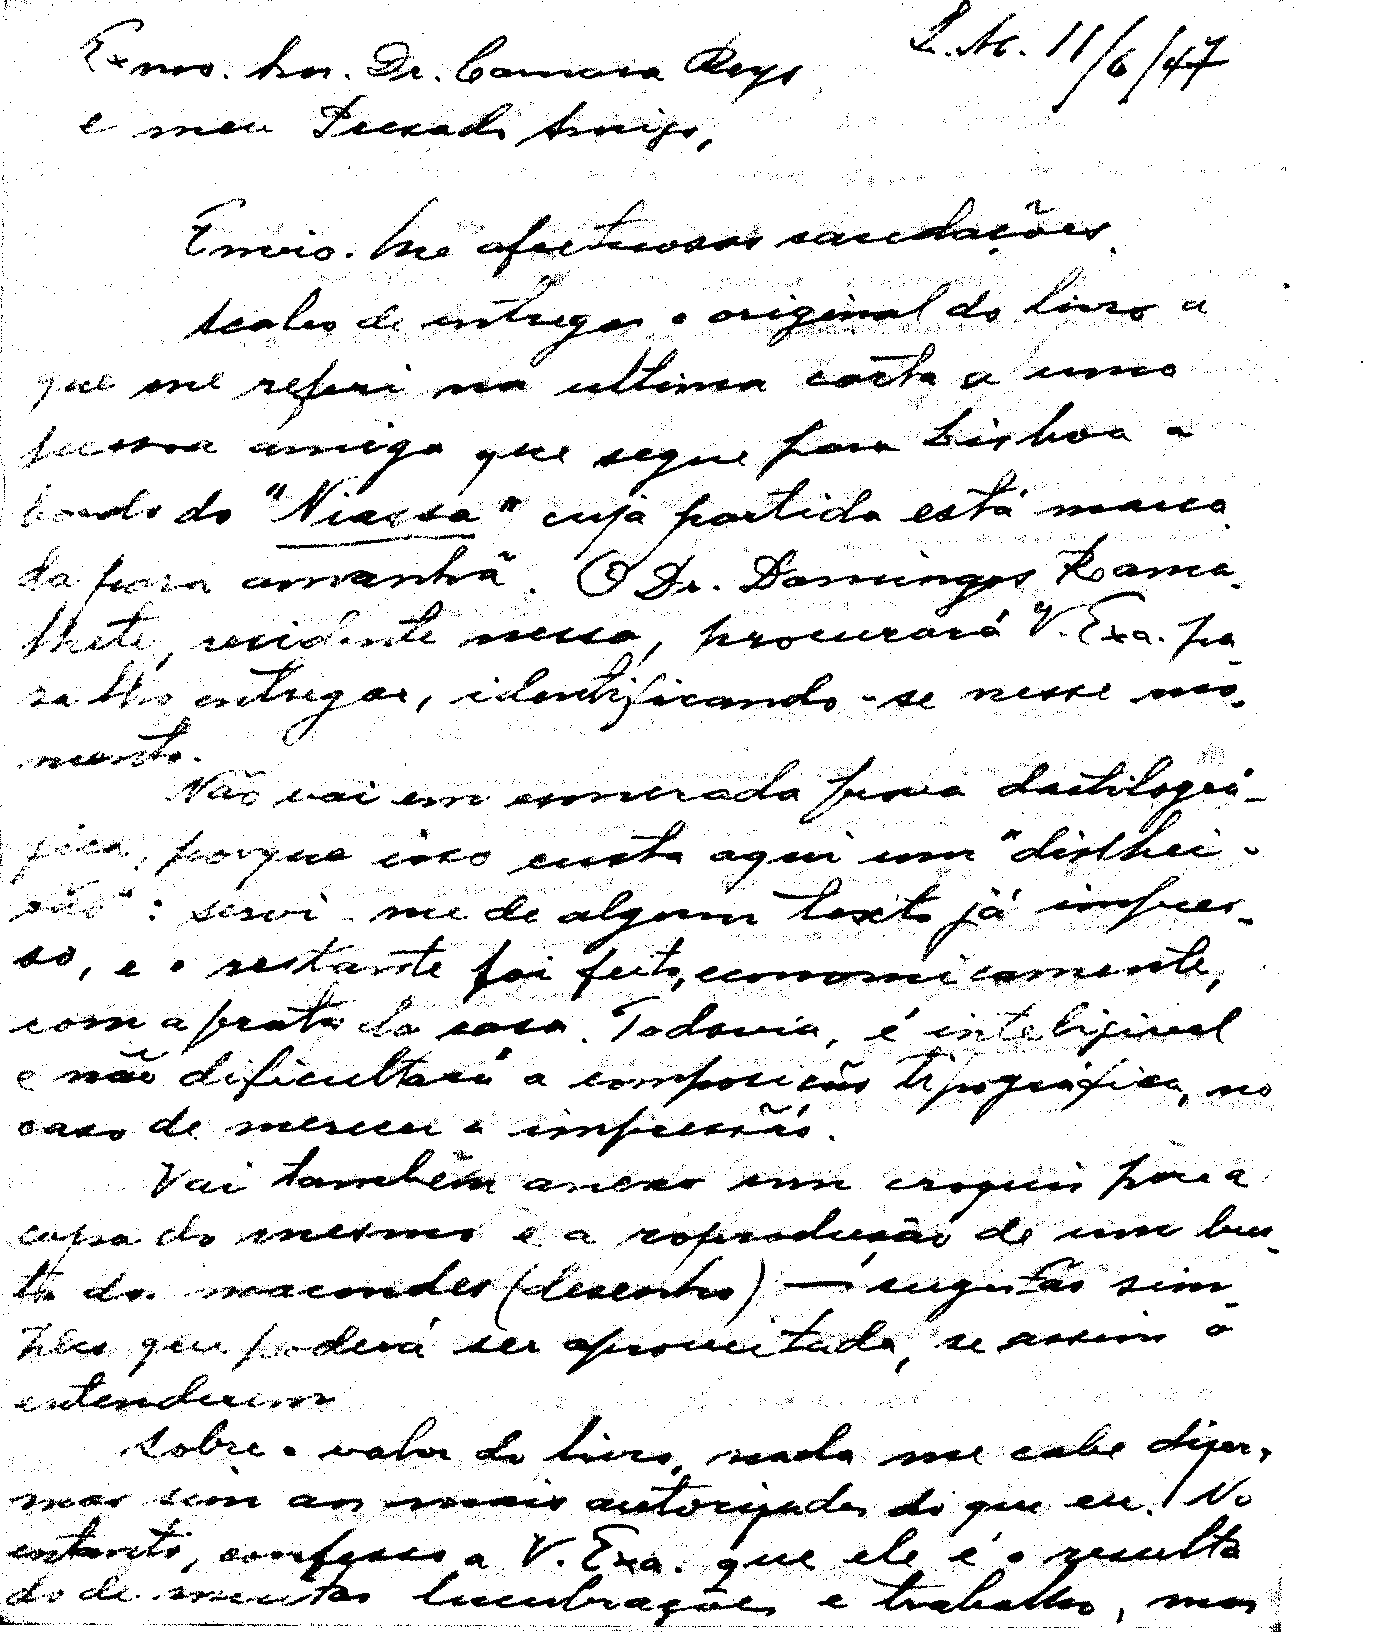 L. M. 11/6/47
Exmo. Snr. Dr. Camara Reys
e meu Prezado Amigo,
Envio-lhe afectuosas saudações.
Acabo de entregar o original do livro a
que me referi na ultima carta a uma
pessoa amiga que segue para Lisboa a
bordo do "Niassa" cuja partida está marca
da para amanhã. O Dr. Domingos Rama-
lhete, residente nessa, procurará V. Exa. pa-
ra lho entregar, identificando-se nesse mo-
mento.
Não vai em esmerada prova dactilográ-
fica, porque isso custa aqui um "dinhei-
rão": servi-me de algum texto já impres-
so, e o restante foi feito, economicamente,
com a prata da casa. Todavia, é inteligivel
e não dificultará a composição tipográfica, no
caso de merecer a impressão.
Vai também anexo um croquis para a
capa do mesmo e a reprodução de um bus-
to dos macondes (desenho) — sugestão sim-
ples que poderá ser aproveitada, se assim o
entenderem
Sobre o valor do livro, nada me cabe dizer,
mas sim aos mais autorizados do que eu. No
entanto, confesso a V. Exa. que ele é o resulta
do de muitas lucubrações e trabalho, mas